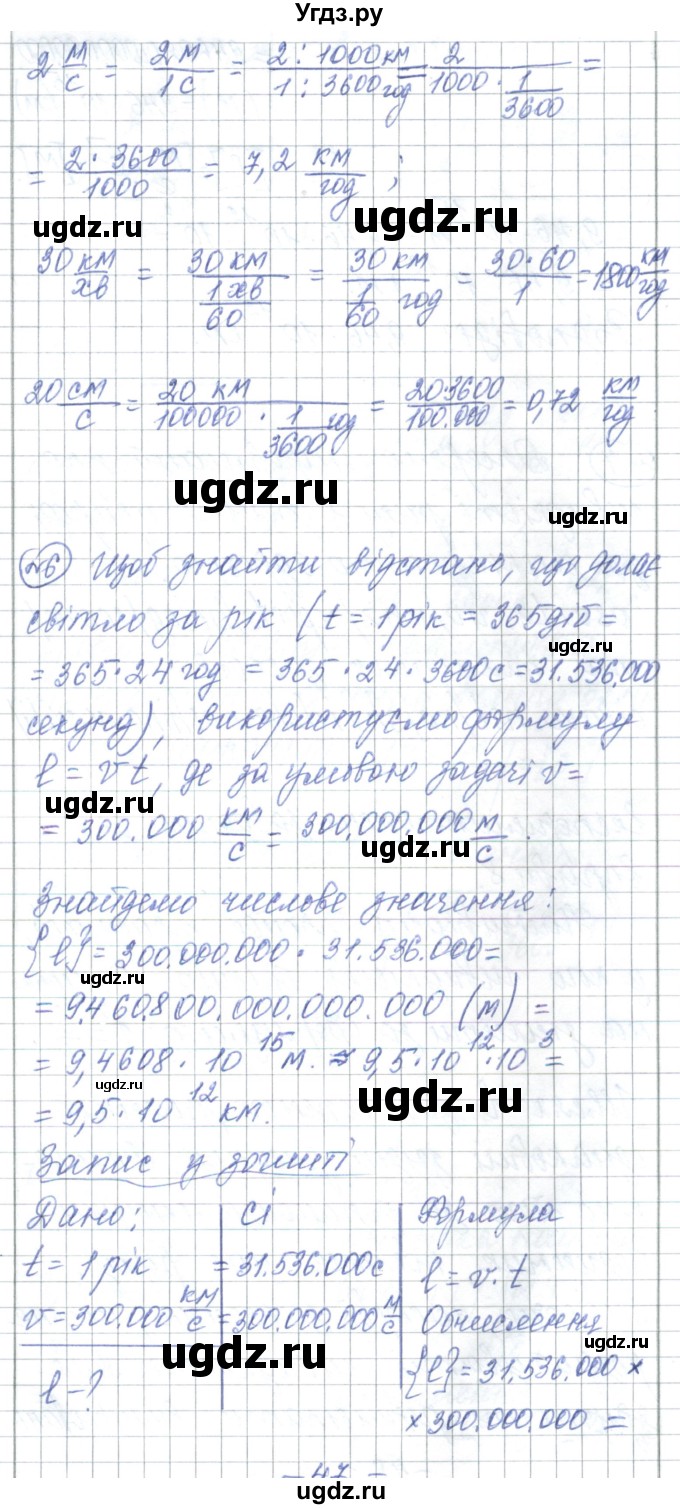 Угдз.ру
2 м/с = 2м/1с = 2 : 1000 км / 1 : 3600 год = 2 / 1000 · 1/3600 =
= 2 · 3600 / 1000 = 7,2 км/год ;
ugdz.ru ugdz.ru
30 км/хв = 30 км / 1 хв/60 = 30 км / 1/60 год = 30·60 / 1 = 1800 км/год
20 см/с = 20 км / 100000 · 1/3600 год = 20·3600 / 100.000 = 0,72 км/год
ugdz.ru
ugdz.ru
№6 Щоб знайти відстань, що долає
світло за рік (t = 1 рік = 365 діб =
= 365 · 24 год = 365 · 24 · 3600 с = 31.536.000
секунд), використуємо формулу
l = v t, де за умовою задачі v =
ugdz.ru
= 300.000 км/с = 300.000.000 м/с.
ugdz.ru
Знайдемо числове значення:
{l} = 300.000.000 · 31.536.000 =
ugdz.ru
= 9.460.800.000.000.000 (м) =
= 9,4608 · 10^15 м. ≈ 9,5 · 10^12 · 10^3 =
ugdz.ru
ugdz.ru
= 9,5 · 10^12 км.
Запис у зошиті
Дано: СІ Формула
t = 1 рік = 31.536.000 с l = v · t
v = 300.000 км/с = 300.000.000 м/с Обчислення
ugdz.ru
ugdz.ru
l - ? {l} = 31.536.000 ×
× 300.000.000 =
- 47 =
ugdz.ru